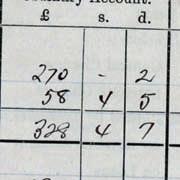 Account.
£ s. d.
270 - 2
58 4 5
328 4 7